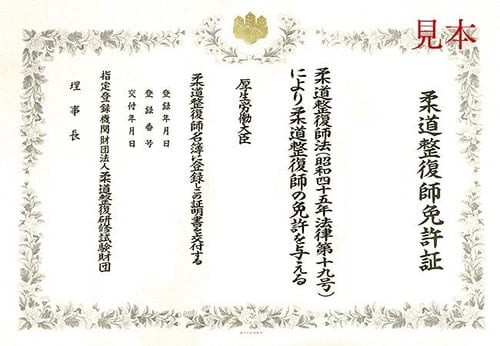 見本
柔道整復師免許証
柔道整復師法(昭和四十五年法律第十九号)
により柔道整復師の免許を与える
厚生労働大臣
柔道整復師名簿に登録しこの証明書を交付する
登録年月日
登録番号
交付年月日
指定登録機関財団法人柔道整復研修試験財団
理事長